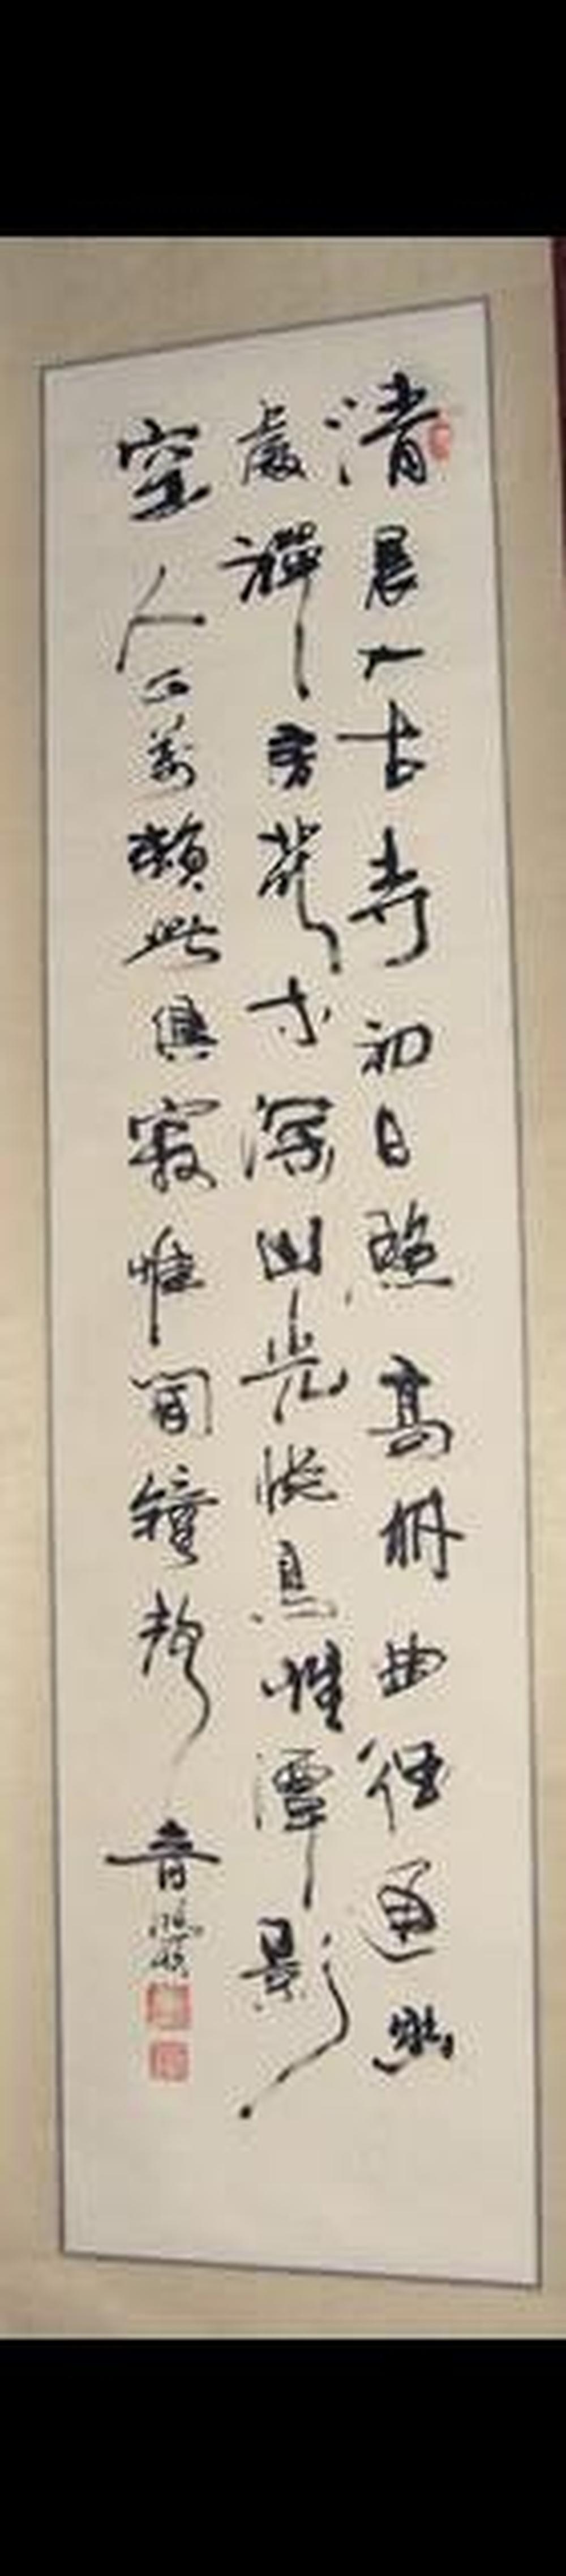 清晨入古寺初日照高林曲徑通幽
處禪房花木深山光悅鳥性潭影
空人心萬籟此俱寂惟聞鐘磬音